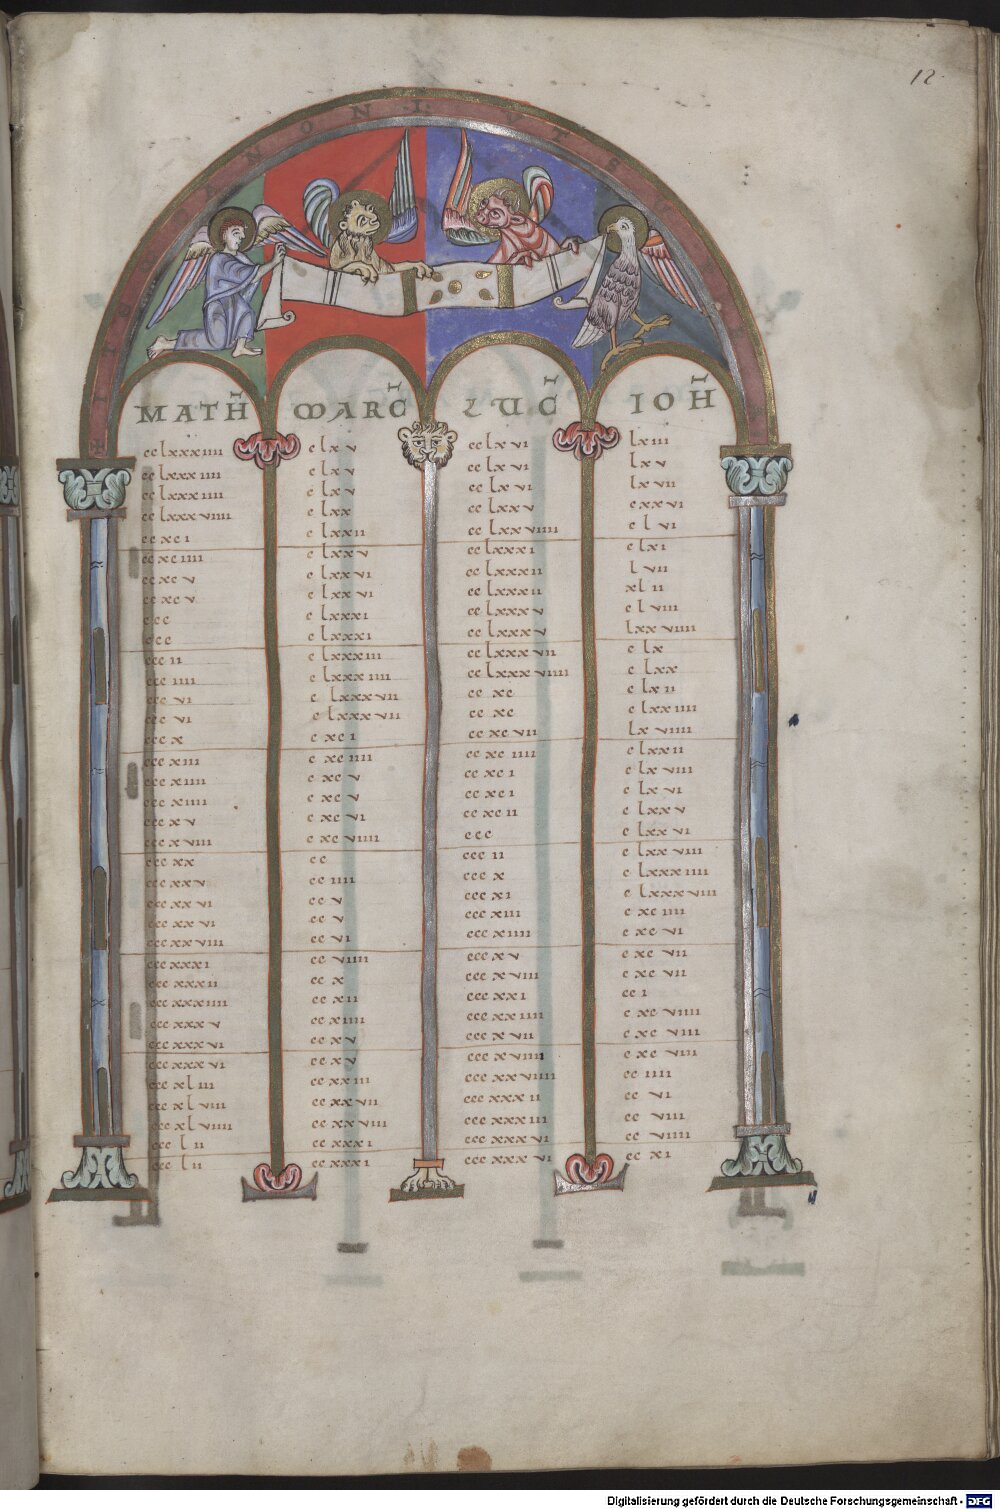 12
MATH̄ MARC̄ LUC̄ IOH̄
cclxxxiiii clxv cclxvi lxiii
cclxxxiiii clxv cclxvi lxv
cclxxxiiii clxv cclxvi lxvii
cclxxxviiii clxx cclxxv cxxvi
ccxci clxxii cclxxviiii clvi
ccxciiii clxxv cclxxxi clxi
ccxcv clxxvi cclxxxii lvii
ccxcv clxxvi cclxxxii xlii
ccc clxxxi cclxxxv clviii
ccc clxxxi cclxxxv lxxviiii
cccii clxxxiii cclxxxvii clx
ccciiii clxxxiiii cclxxxviiii clxx
cccvi clxxxvii ccxc clxii
cccvi clxxxvii ccxc clxxiiii
cccx cxci ccxcvii lxviiii
cccxiii cxciiii ccxciiii clxxii
cccxiiii cxcv ccxci clxviii
cccxiiii cxcv ccxci clxvi
cccxv cxcvi ccxcii clxxv
cccxviii cxcviiii ccc clxxvi
cccxx cc cccii clxxviii
cccxxv cciiii cccx clxxxiiii
cccxxvi ccv cccxi clxxxviii
cccxxvi ccv cccxiii cxciiii
cccxxviii ccvi cccxiiii cxcvi
cccxxxi ccviiii cccxv cxcvii
cccxxxii ccx cccxviii cxcvii
cccxxxiiii ccxii cccxxi cci
cccxxxv ccxiiii cccxxiiii cxcviiii
cccxxxvi ccxv cccxvii cxcviii
cccxxxvi ccxv cccxviiii cxcviii
cccxliii ccxxiii cccxxviiii cciiii
cccxlviii ccxxvii cccxxxii ccvi
cccxlviiii ccxxviii cccxxxiii ccviii
ccclii ccxxxi cccxxxvi ccviiii
ccclii ccxxxi cccxxxvi ccxi
Digitalisierung gefördert durch die Deutsche Forschungsgemeinschaft - DFG